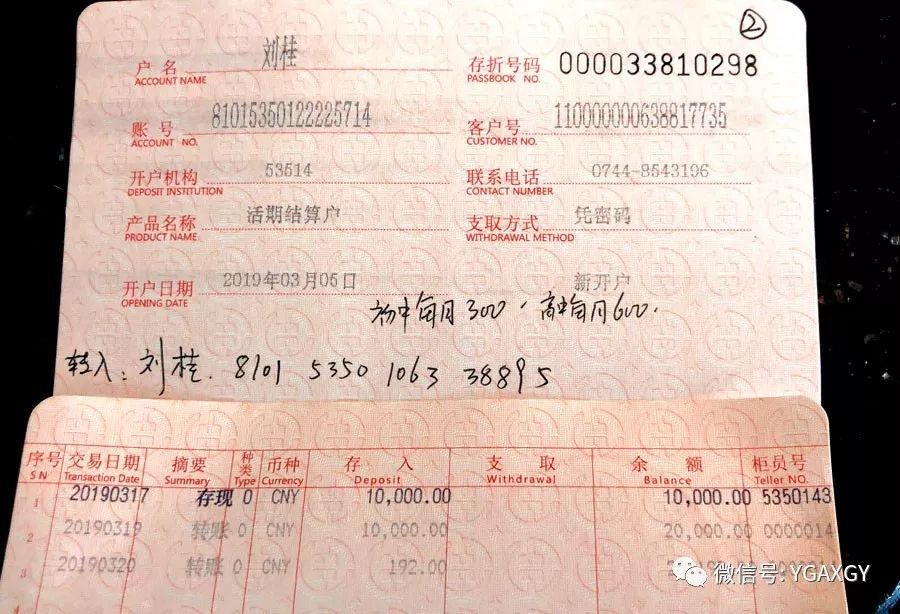 ②
户名 刘桂 存折号码 000033810298
ACCOUNT NAME PASSBOOK NO.
账号 81015350122225714 客户号 110000000638817735
ACCOUNT NO. CUSTOMER NO.
开户机构 53514 联系电话 0744-8543196
DEPOSIT INSTITUTION CONTACT NUMBER
产品名称 活期结算户 支取方式 凭密码
PRODUCT NAME WITHDRAWAL METHOD
开户日期 2019年03月05日 新开户
OPENING DATE
初中每月300,高中每月600.
转入:刘桂. 8101 5350 1063 38895
序号 交易日期 摘要 种类 币种 存入 支取 余额 柜员号
S N Transaction Date Summary Type Currency Deposit Withdrawal Balance Teller NO.
1 20190317 存现 0 CNY 10,000.00 10,000.00 5350143
2 20190319 转账 0 CNY 10,000.00 20,000.00 0000014
3 20190320 转账 0 CNY 192.00
微信号: YGAXGY